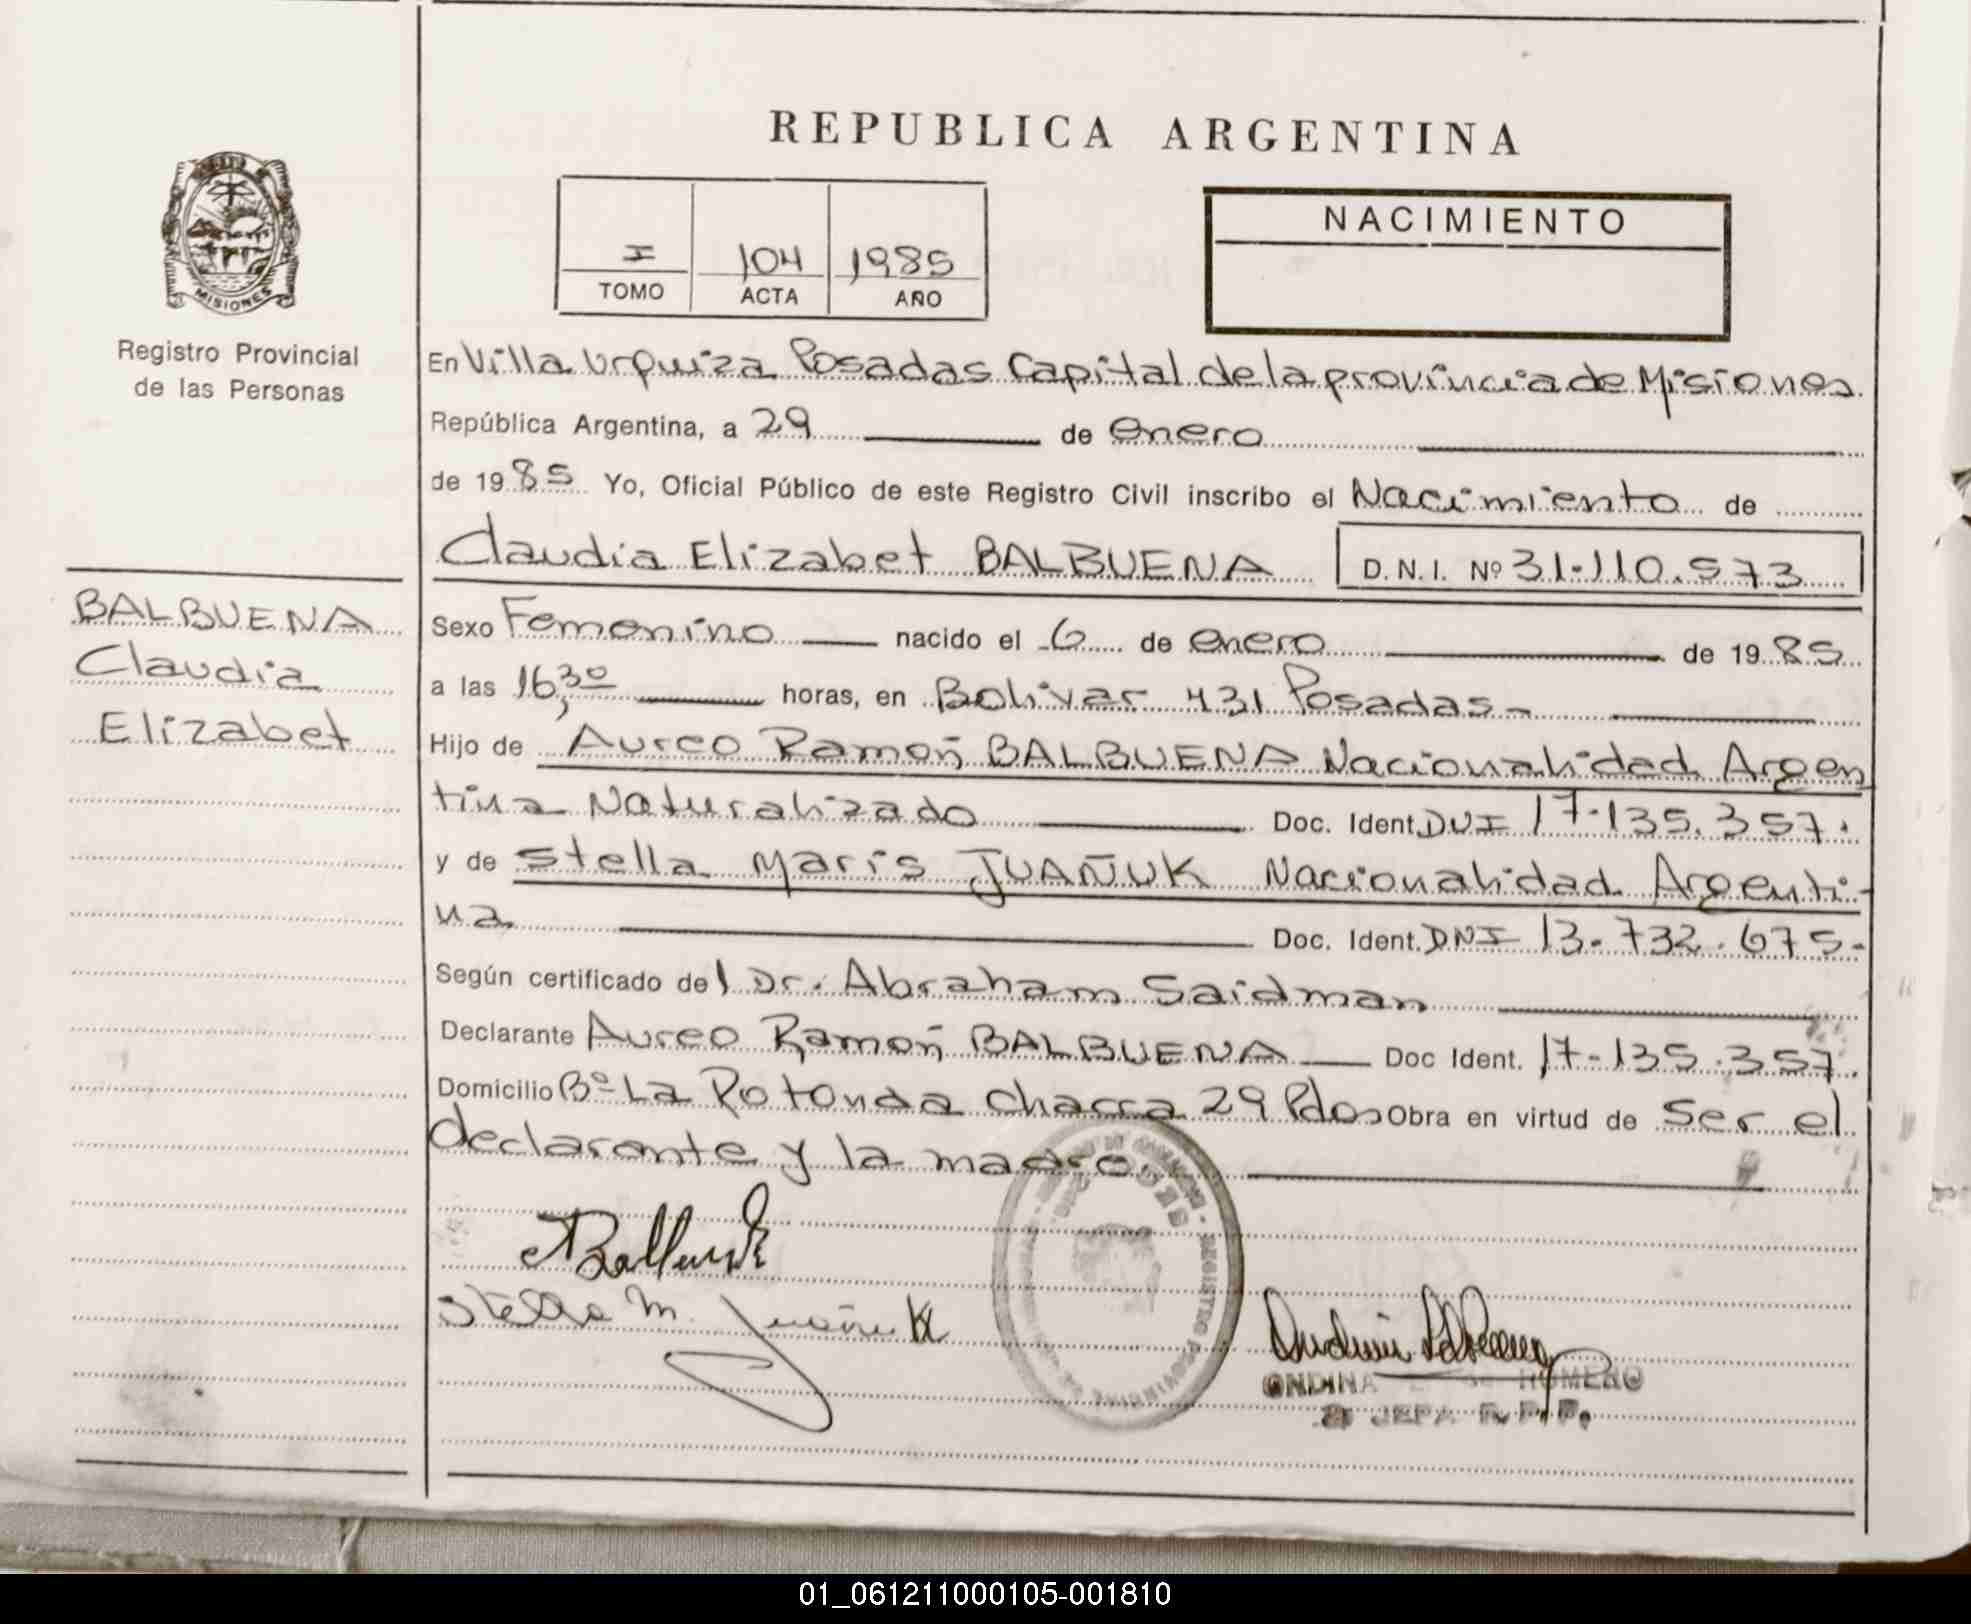 REPUBLICA ARGENTINA
MISIONES
Registro Provincial
de las Personas
I 104 1985
TOMO ACTA AÑO
NACIMIENTO
En Villa Urquiza Posadas Capital de la provincia de Misiones
República Argentina, a 29 de enero
de 1985 Yo, Oficial Público de este Registro Civil inscribo el Nacimiento de
Claudia Elizabet BALBUENA D.N.I. Nº 31.110.573
BALBUENA
Claudia
Elizabet
Sexo Femenino nacido el 6 de enero de 1985
a las 16,30 horas, en Bolivar 431 Posadas-
Hijo de Aureo Ramón BALBUENA Nacionalidad Argen
tina Naturalizado Doc. Ident. DNI 17.135.357.
y de Stella Maris JUAÑUK Nacionalidad Argenti-
na Doc. Ident. DNI 13.732.675-
Según certificado del Dr. Abraham Saidman
Declarante Aureo Ramón BALBUENA Doc Ident. 17-135.357.
Domicilio Bº La Rotonda Chacra 29 Pdas Obra en virtud de Ser el
declarante y la madre.
Stella M. Juañuk
REGISTRO PROVINCIAL DE LAS
ONDINA ROMERO
JEFA R. P. P.
01_061211000105-001810